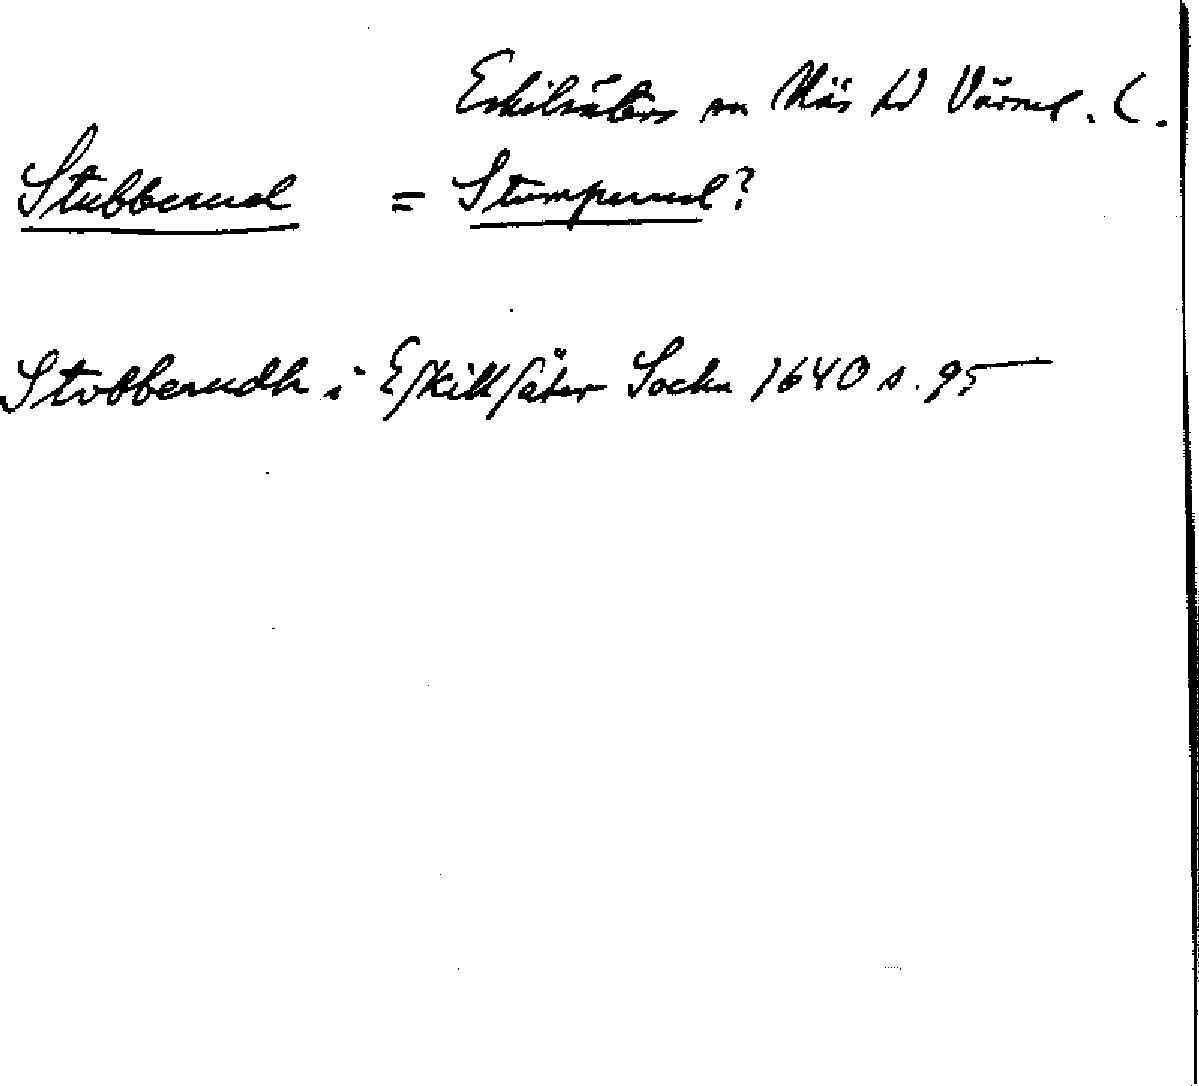 Eskilsäters sn Näs hd Värml. l.
Stubberud = Stumperud?
Stobberudh i Eskillsäter Sochn 1640 s. 95